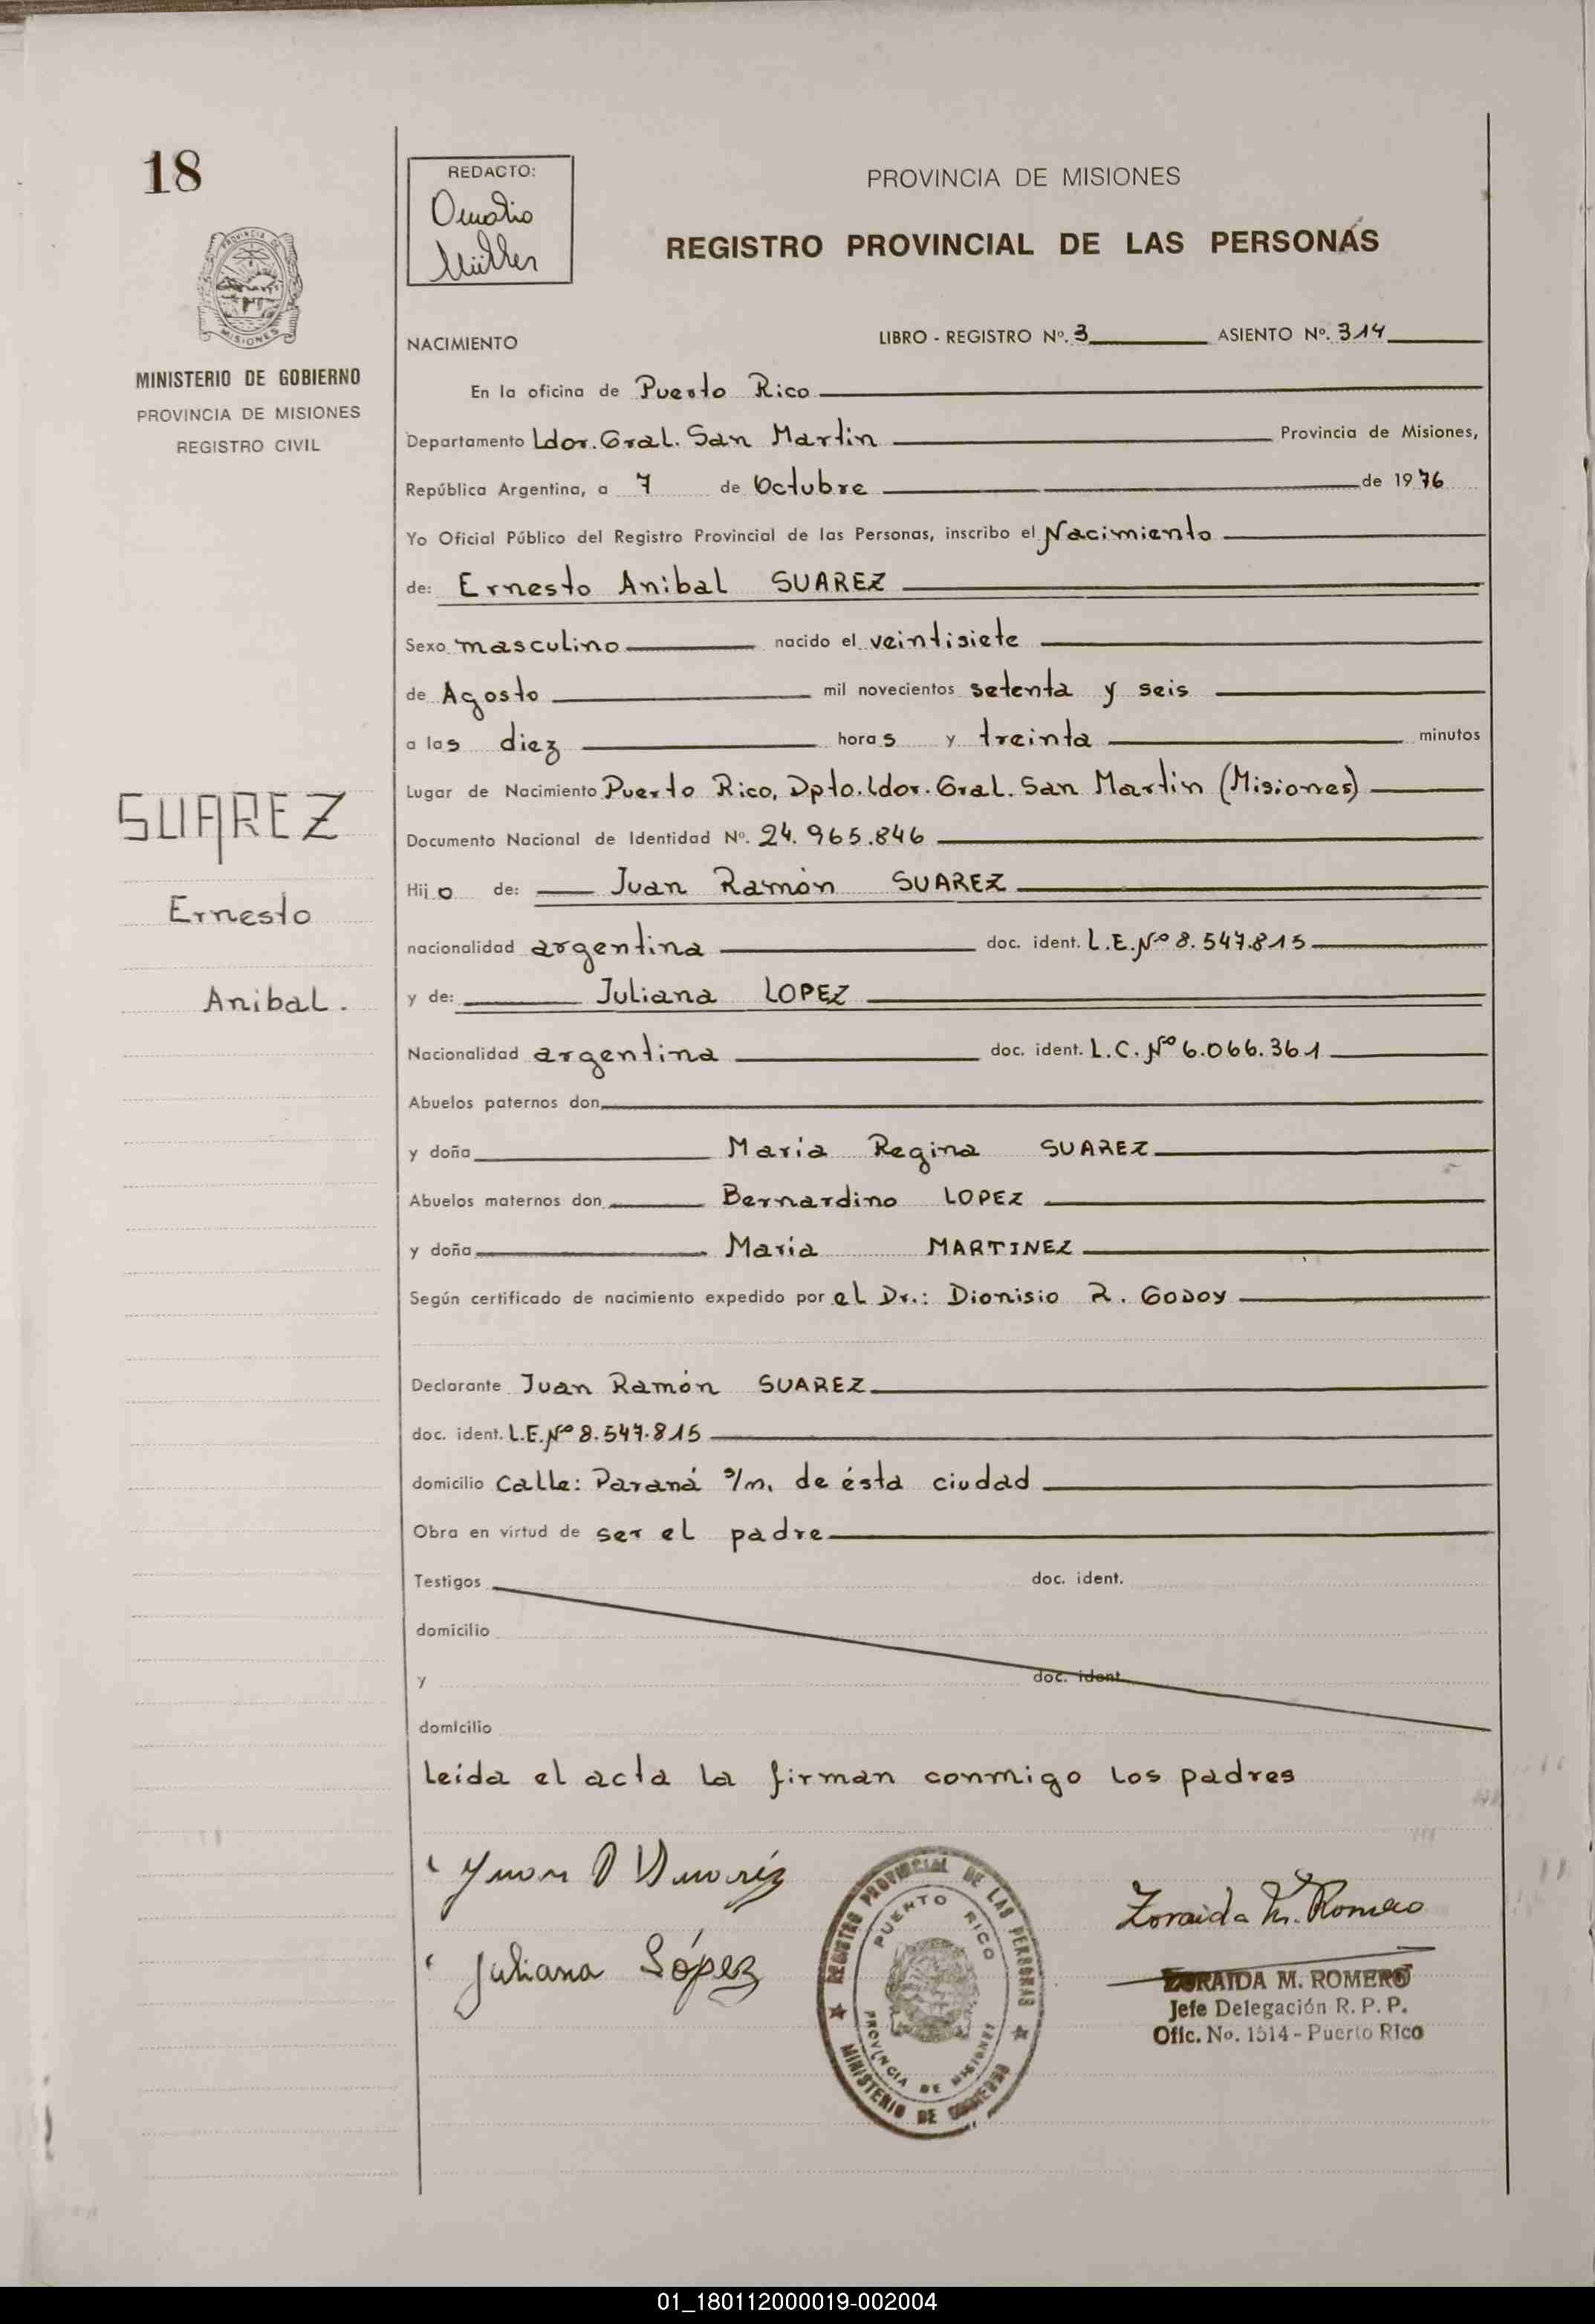 18
REDACTO:
Müller
PROVINCIA DE MISIONES
REGISTRO PROVINCIAL DE LAS PERSONAS
PROVINCIA DE
MISIONES
MINISTERIO DE GOBIERNO
PROVINCIA DE MISIONES
REGISTRO CIVIL
NACIMIENTO
LIBRO - REGISTRO Nº. 3 ASIENTO Nº. 314
En la oficina de Puerto Rico
Departamento Ldor. Gral. San Martin Provincia de Misiones,
República Argentina, a 7 de Octubre de 1976
Yo Oficial Público del Registro Provincial de las Personas, inscribo el Nacimiento
de: Ernesto Anibal SUAREZ
Sexo masculino nacido el veintisiete
de Agosto mil novecientos setenta y seis
a las diez horas y treinta minutos
Lugar de Nacimiento Puerto Rico, Dpto. Ldor. Gral. San Martin (Misiones)
Documento Nacional de Identidad Nº. 24.965.846
Hijo de: Juan Ramón SUAREZ
nacionalidad argentina doc. ident. L.E.Nº 8.547.815
y de: Juliana LOPEZ
Nacionalidad argentina doc. ident. L.C. Nº 6.066.361
Abuelos paternos don
y doña Maria Regina SUAREZ
Abuelos maternos don Bernardino LOPEZ
y doña Maria MARTINEZ
Según certificado de nacimiento expedido por el Dr.: Dionisio R. GODOY
Declarante Juan Ramón SUAREZ
doc. ident. L.E.Nº 8.547.815
domicilio Calle: Paraná s/n. de ésta ciudad
Obra en virtud de ser el padre
Testigos doc. ident.
domicilio
y doc. ident.
domicilio
Leída el acta la firman conmigo los padres
SUAREZ
Ernesto
Anibal.
Juan R Suaréz
Juliana López
REGISTRO PROVINCIAL DE LAS PERSONAS
PUERTO RICO
PROVINCIA DE MISIONES
MINISTERIO DE GOBIERNO
Zoraida M. Romero
ZORAIDA M. ROMERO
Jefe Delegación R. P. P.
Ofic. No. 1514 - Puerto Rico
01_180112000019-002004